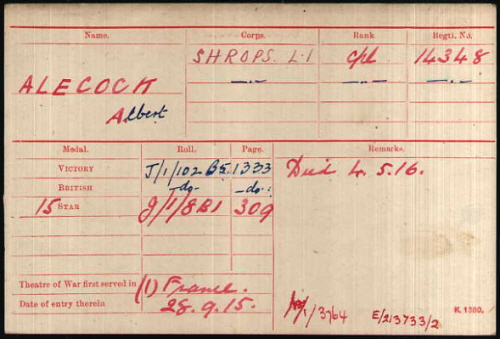 Name. Corps. Rank Regtl. No.
SHROPS. L.I Cpl 14348
ALECOCK —.— —.— —.—
Albert
Medal. Roll. Page. Remarks.
VICTORY J/1/102 B5 1333 Died 4.5.16.
BRITISH -do- -do-
15 STAR J/1/8B1 309
Theatre of War first served in (1) France.
Date of entry therein 28.9.15.
/3764 E/213733/2 K. 1380.